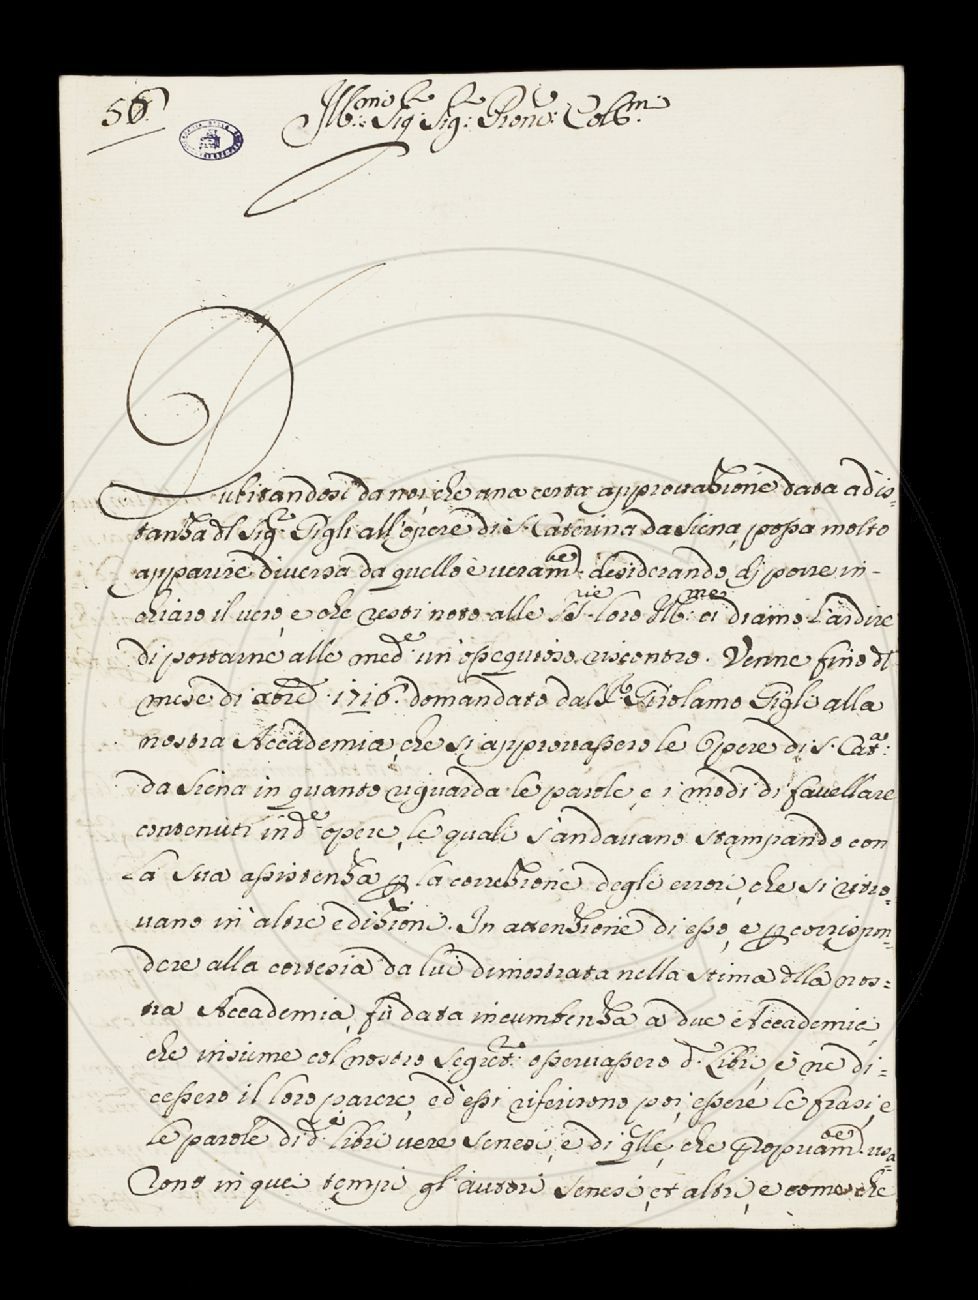 56
Ill:mo Sig:r Sig:r Prone: Colt:mo
Dubitandosi da noi, che una certa approvazione data ad is-
tanza dl Sig:r Gigli all'opere di S. Caterina da Siena, possa molto
apparire diversa da quello è veram:te desiderando di porre in
chiaro il vero, e che resti noto alle SS:rie loro Ill:me ci diamo l'ardire
di portarne alle med:e un' ossequioso riscontro. Venne fino dl
mese di Xbre 1716. domandato dal S:r Girolamo Gigli alla
nostra Accademia, che si approvassero le Opere di S. Cat:a
da Siena in quanto riguarda le parole, e i modi di favellare
contenuti in d:e opere, le quali s'andavano stampando con
la sua assistenza p la correzione degli errori, che si ritro-
vano in altre edizioni. In attenzione di esso, e p corrispon-
dere alla cortesia da lui dimostrata nella stima dlla nos-
tra Accademia, fù data incumbenza a due Accademici,
che insieme col nostro Segret:o osservassero d:i Libri, e ne di-
cessero il loro parere, ed essi riferirono poi, essere le frasi, e
le parole di d:i libri vere Senesi, e di qlle, che propriam:te usa
rono in quei tempi gl'autori Senesi, et altri, e come che